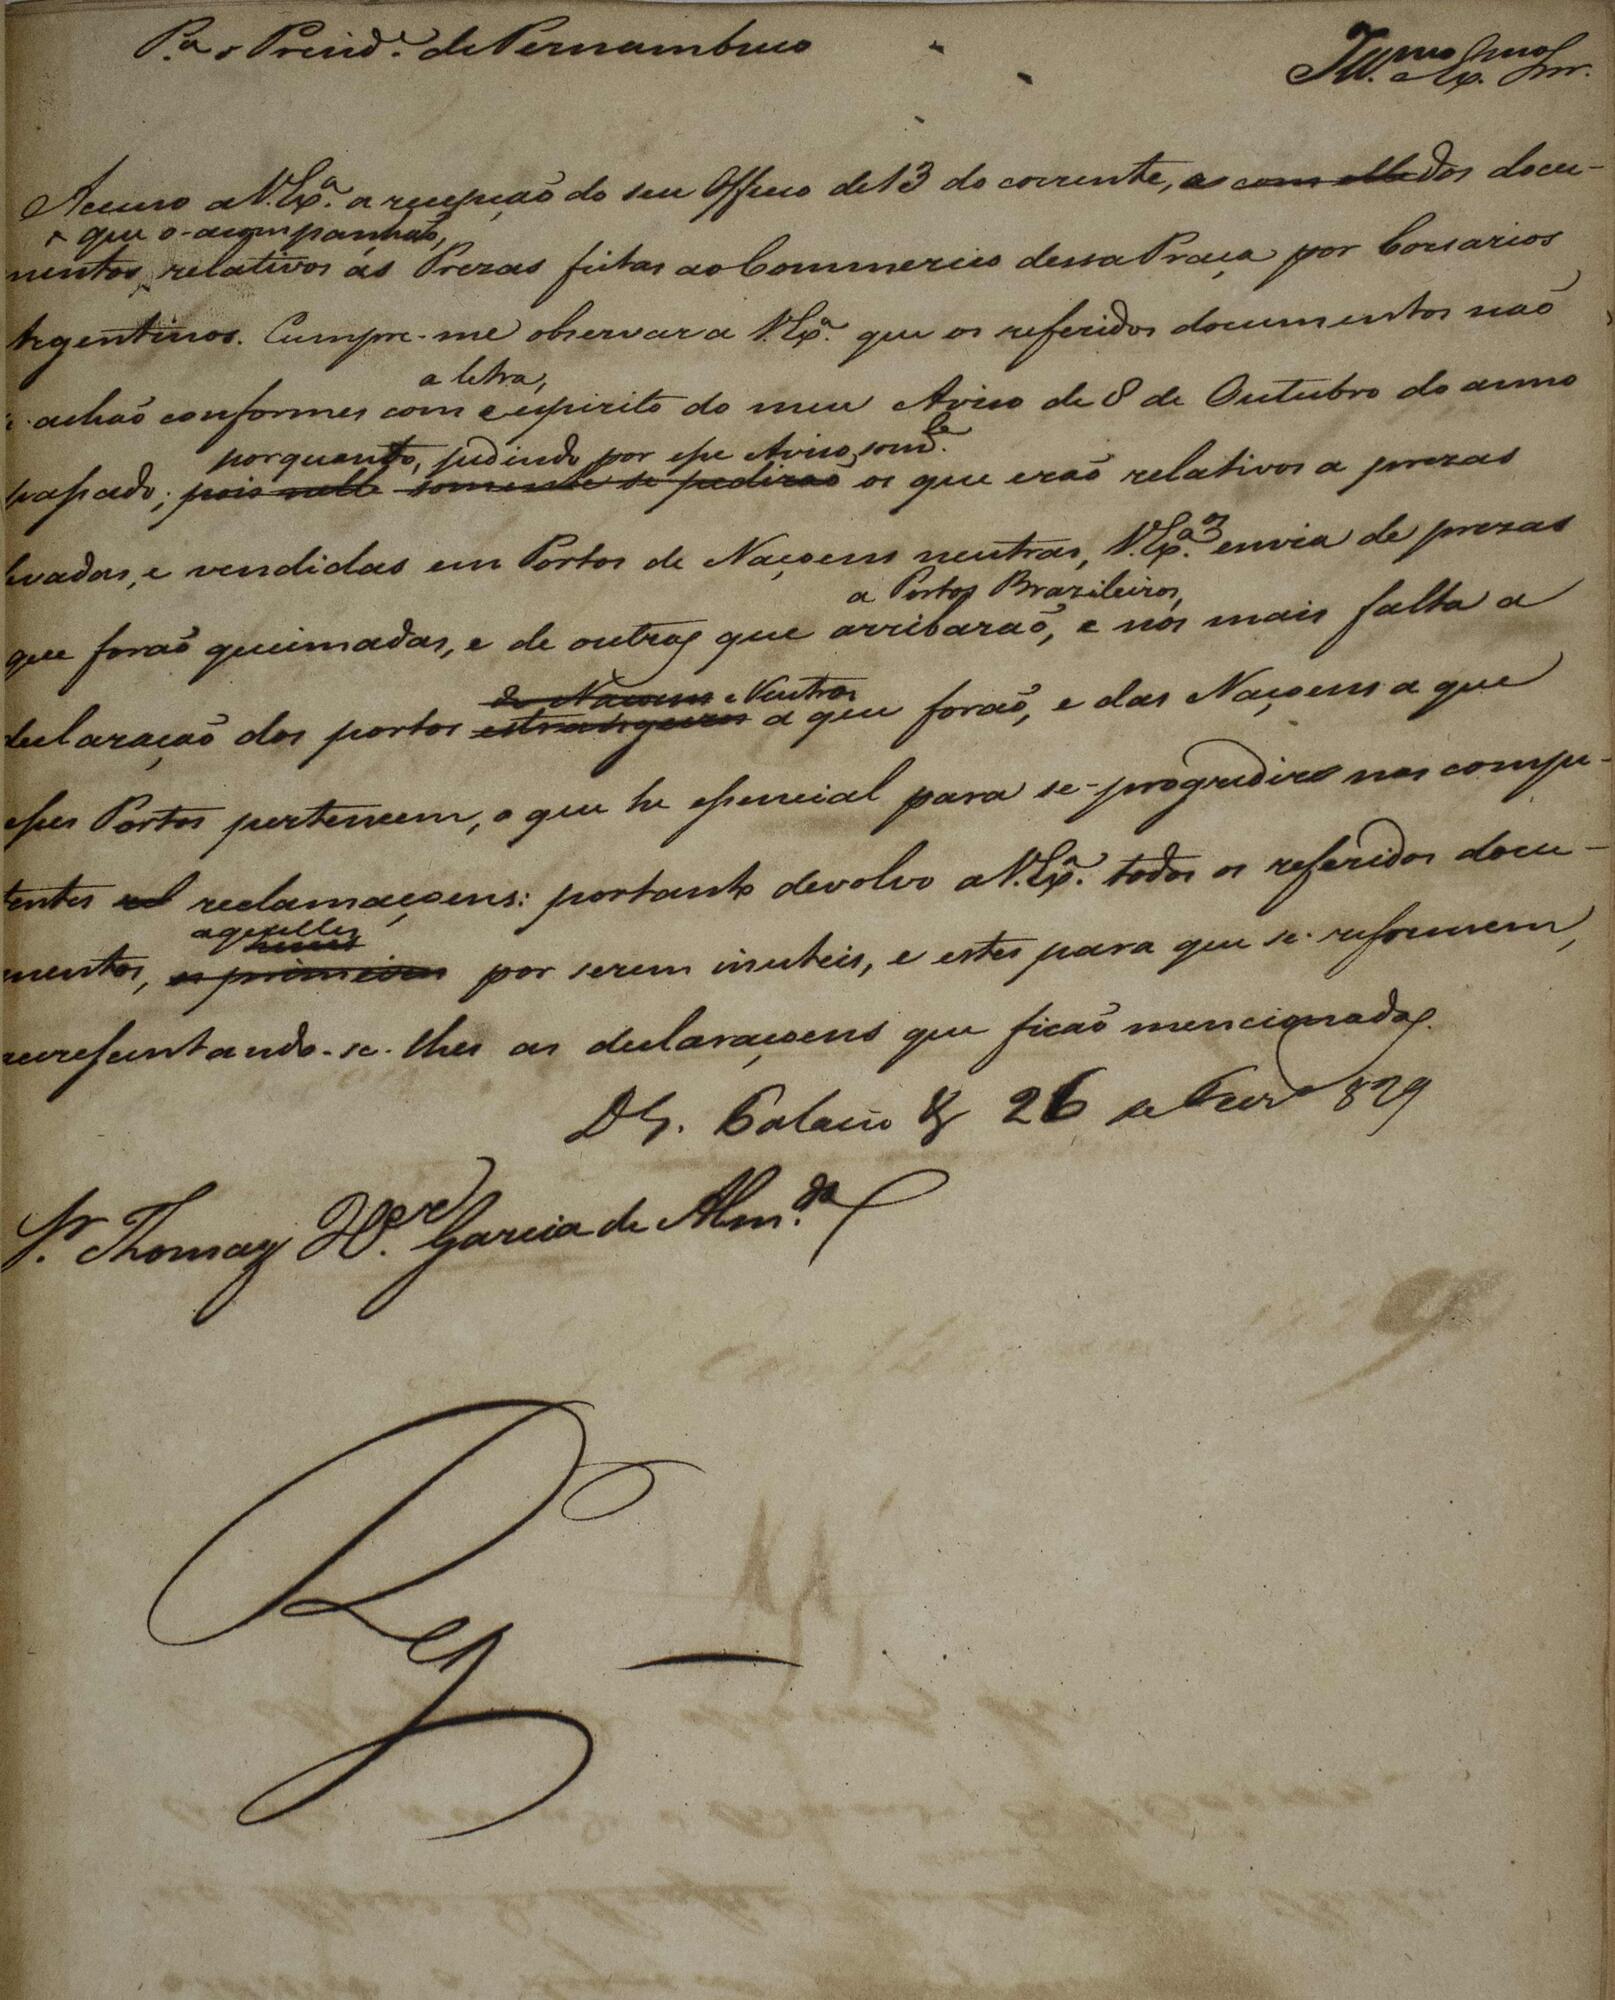 P.ª o Prezid.e de Pernambuco
Ill.mo e Ex.mo Snr.
Accuso a V. Ex.ª a recepção do seu Officio de 13 do corrente, e dos docu-
que o acompanhão,
mentos relativos ás Prezas feitas ao Commercio dessa Praça por Corsarios
Argentinos. Cumpre-me observar a V. Ex.ª que os referidos documentos não
a letra,
se achão conformes com e espirito do meu Aviso de 8 de Outubro do anno
porquanto, pedindo por esse Aviso som.te
passado; pois nelle somente se pedirão os que erão relativos a prezas
levadas, e vendidas em Portos de Naçoens neutras, V. Ex.ª envia de prezas
a Portos Brazileiros,
que forão queimadas, e de outras que arribarão, e nos mais falta a
de Naçoens Neutros
declaração dos portos estrangeiros a que forão, e das Naçoens a que
esses Portos pertencem, o que he essencial para se progredir nas compe-
tentes reclamaçoens: portanto devolvo a V. Ex.ª todos os referidos docu-
aquelles
mentos, os primeiros por serem inuteis, e estes para que se reformem,
accrescentando-se-lhes as declaraçoens que ficão mencionadas.
D. G. Palacio 26 de Fever.o 829
Sr. Thomaz X.er Garcia de Alm.da
Reg